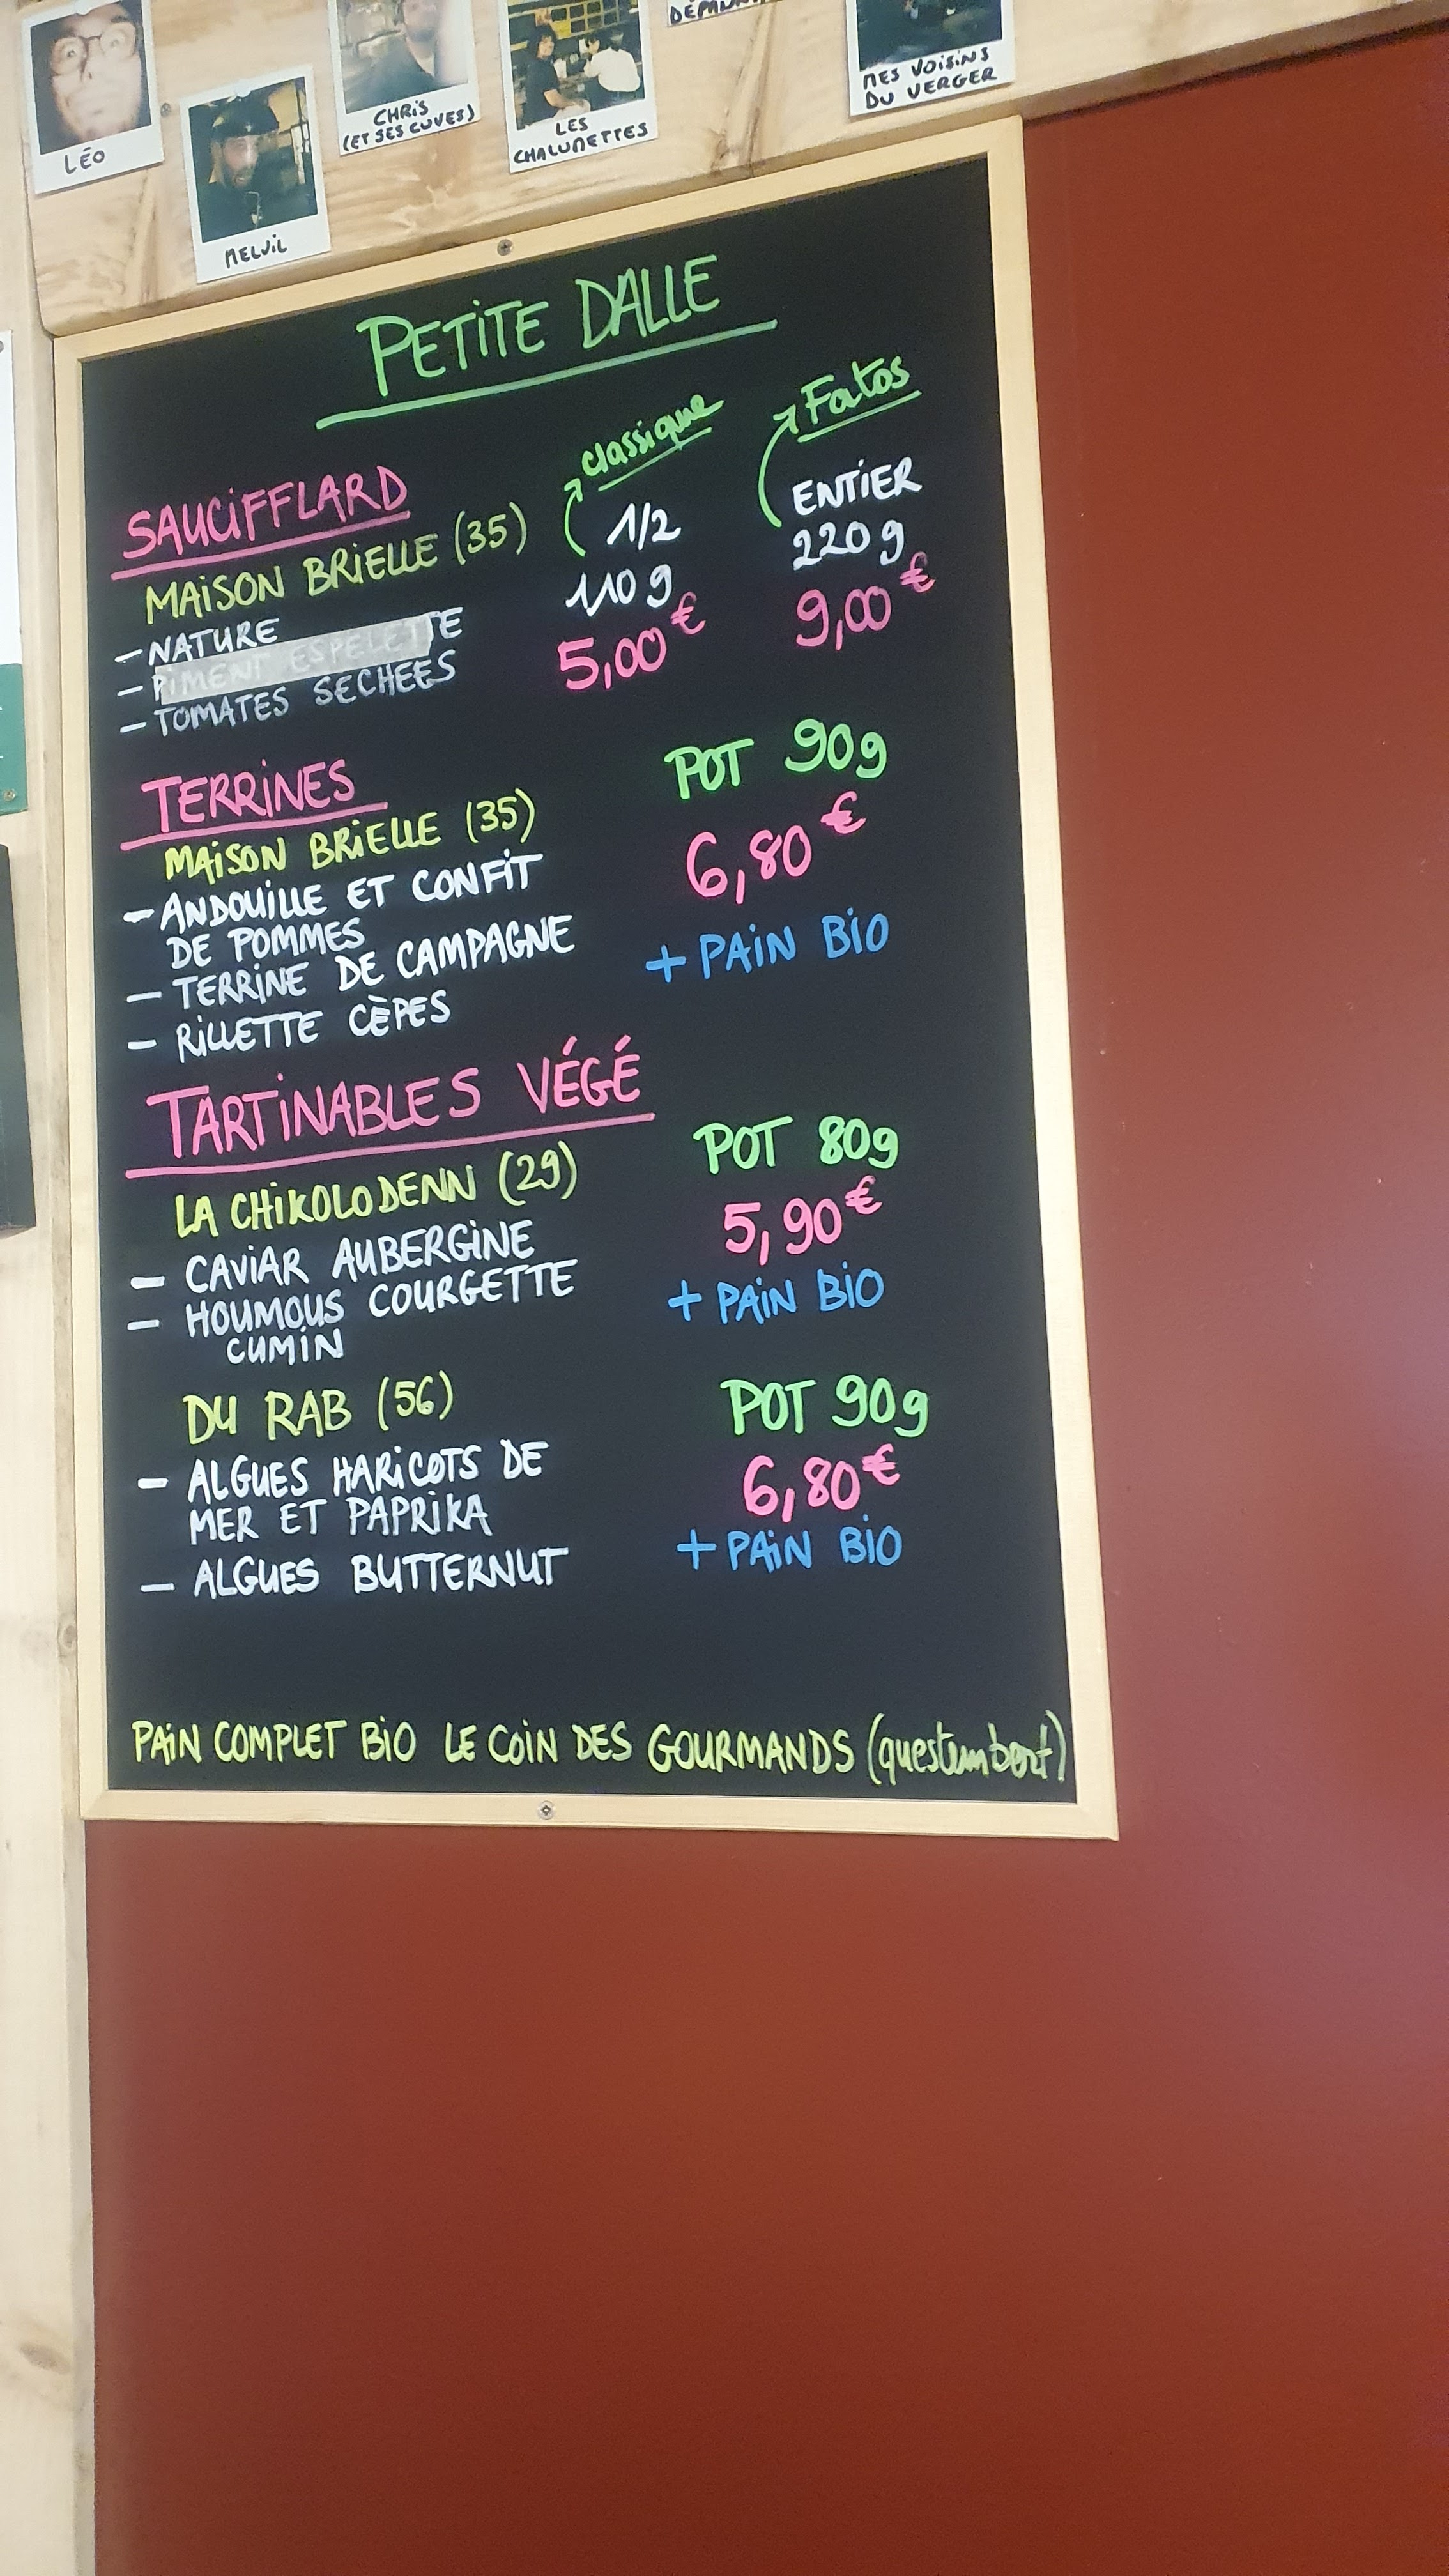 LÉO
MELVIL
CHRIS
(ET SES CUVES)
LES
CHALUNETTES
MES VOISINS
DU VERGER
PETITE DALLE
classique
Fatos
SAUCIFFLARD
MAISON BRIELLE (35)
1/2
110g
5,00€
ENTIER
220g
9,00€
- NATURE
- PIMENT ESPELETTE
- TOMATES SECHEES
TERRINES
MAISON BRIELLE (35)
POT 90g
6,80€
+ PAIN BIO
- ANDOUILLE ET CONFIT
DE POMMES
- TERRINE DE CAMPAGNE
- RILLETTE CÈPES
TARTINABLES VÉGÉ
LA CHIKOLODENN (29)
POT 80g
5,90€
+ PAIN BIO
- CAVIAR AUBERGINE
- HOUMOUS COURGETTE
CUMIN
DU RAB (56)
POT 90g
6,80€
+ PAIN BIO
- ALGUES HARICOTS DE
MER ET PAPRIKA
- ALGUES BUTTERNUT
PAIN COMPLET BIO LE COIN DES GOURMANDS (questembert)